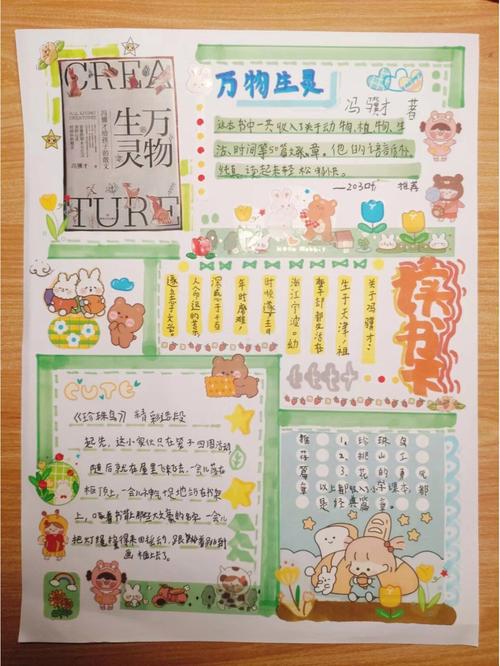 CREA
TURE
冯骥才给孩子的散文
万物
生灵
冯骥才
万物生灵
冯骥才 著
这本书中一共收入了关于动物、植物、生
活、时间等50篇文章。他的语言质朴
纯真,读起来轻松愉快。
推荐
关于冯骥才:
生于天津,祖
浙江宁波。幼
年时
CUTE
《珍珠鸟》精彩选段
起先,这小家伙只在笼子四周活动,
随后就在屋里飞来飞去,一会儿落在
柜顶上,一会儿神气十足地站在书架
上,啄着书背上那些大文豪的名字;一会儿
把灯绳撞得来回摇动,跟着跳到
画框上去了。
推荐篇章
1、珍珠鸟
2、挑山工
3、花的勇气
以上都收入小学课本,都
是经典篇章